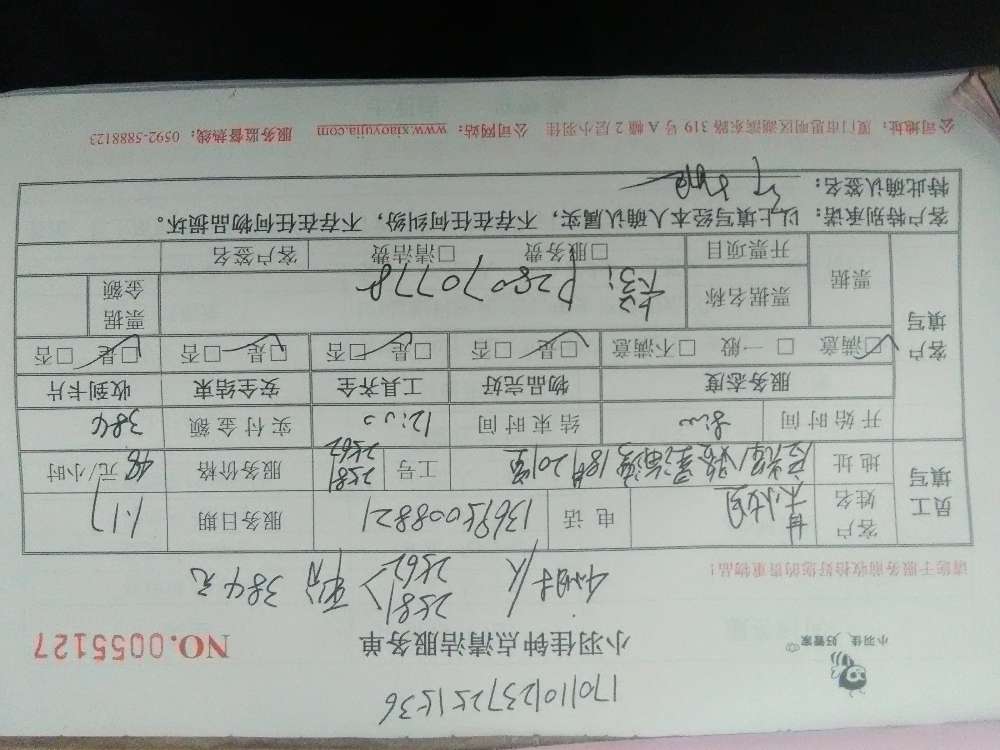 170110237251536
小羽佳 好管家
小羽佳钟点清洁服务单 NO.0055127
4小时/人 2581 2562 平分 384元
请您于服务前收拾好您的贵重物品!
员工填写
客户姓名 小姐 电话 服务日期 1.17
地址 工号 2581 2562 服务价格 48元/小时
开始时间 8:00 结束时间 12:00 实付金额 384
客户填写
服务态度 物品完好 工具齐全 安全结束 收到卡片
☑满意 □一般 □不满意 ☑是 □否 ☑是 □否 ☑是 □否 ☑是 □否
票据 票据名称 票据金额
开票项目 □服务费 □清洁费 客户签名
客户特别承诺:以上填写经本人确认属实,不存在任何纠纷,不存在任何物品损坏。
特此确认签名:
公司地址:厦门市思明区湖滨东路319号A幢2层小羽佳 公司网站:www.xiaoyujia.com 服务监督热线:0592-5888123